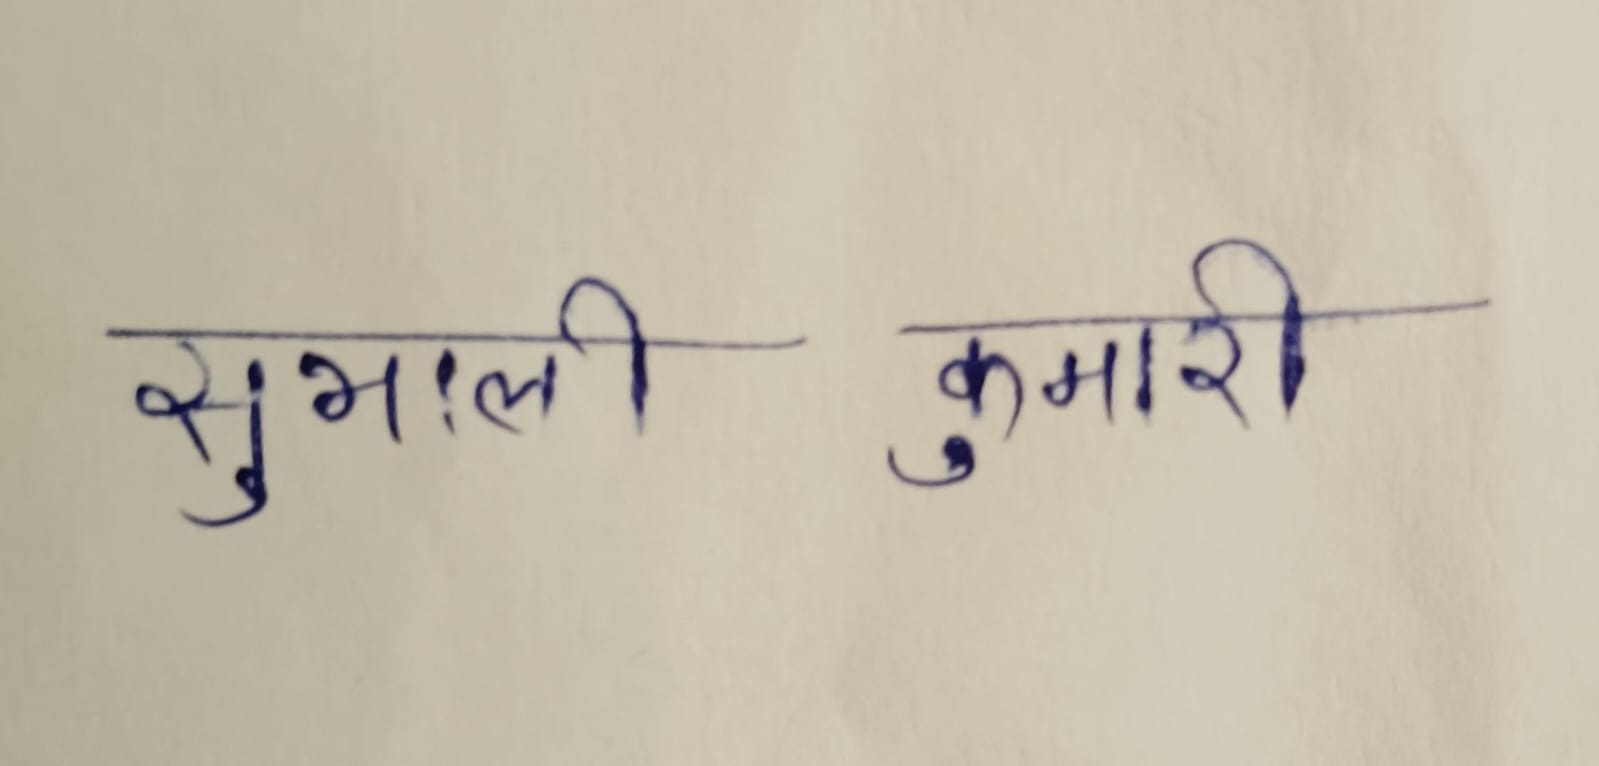 सुभाली कुमारी